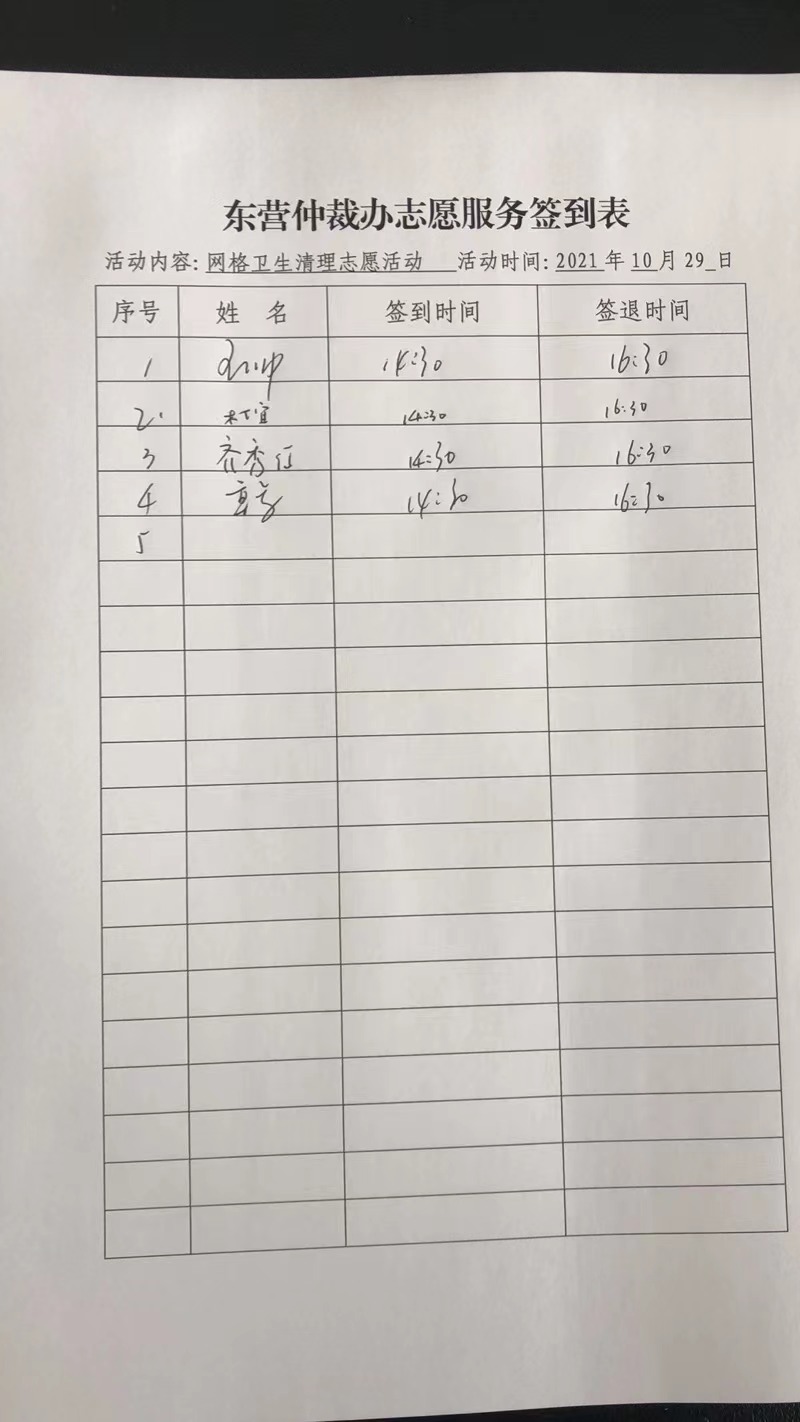 东营仲裁办志愿服务签到表
活动内容: 网格卫生清理志愿活动 活动时间: 2021 年 10 月 29 日
序号 姓 名 签到时间 签退时间
1 14:30 16:30
2 14:30 16:30
3 齐秀 14:30 16:30
4 14:30 16:30
5